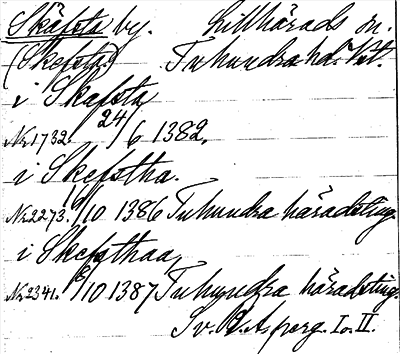 Skäfsta by. Lillhärads sn.
(Skefsta.) Tuhundra hd. Vstm.
i Skafsta
Nr 1732. 24/6 1382.
i Skefstha.
Nr 2273. 16/10 1386 Tuhundra häradsting.
i Skefsthaa
Nr 2341. 8/10 1387 Tuhundra häradsting.
Sv. R. A. perg. I o. II.